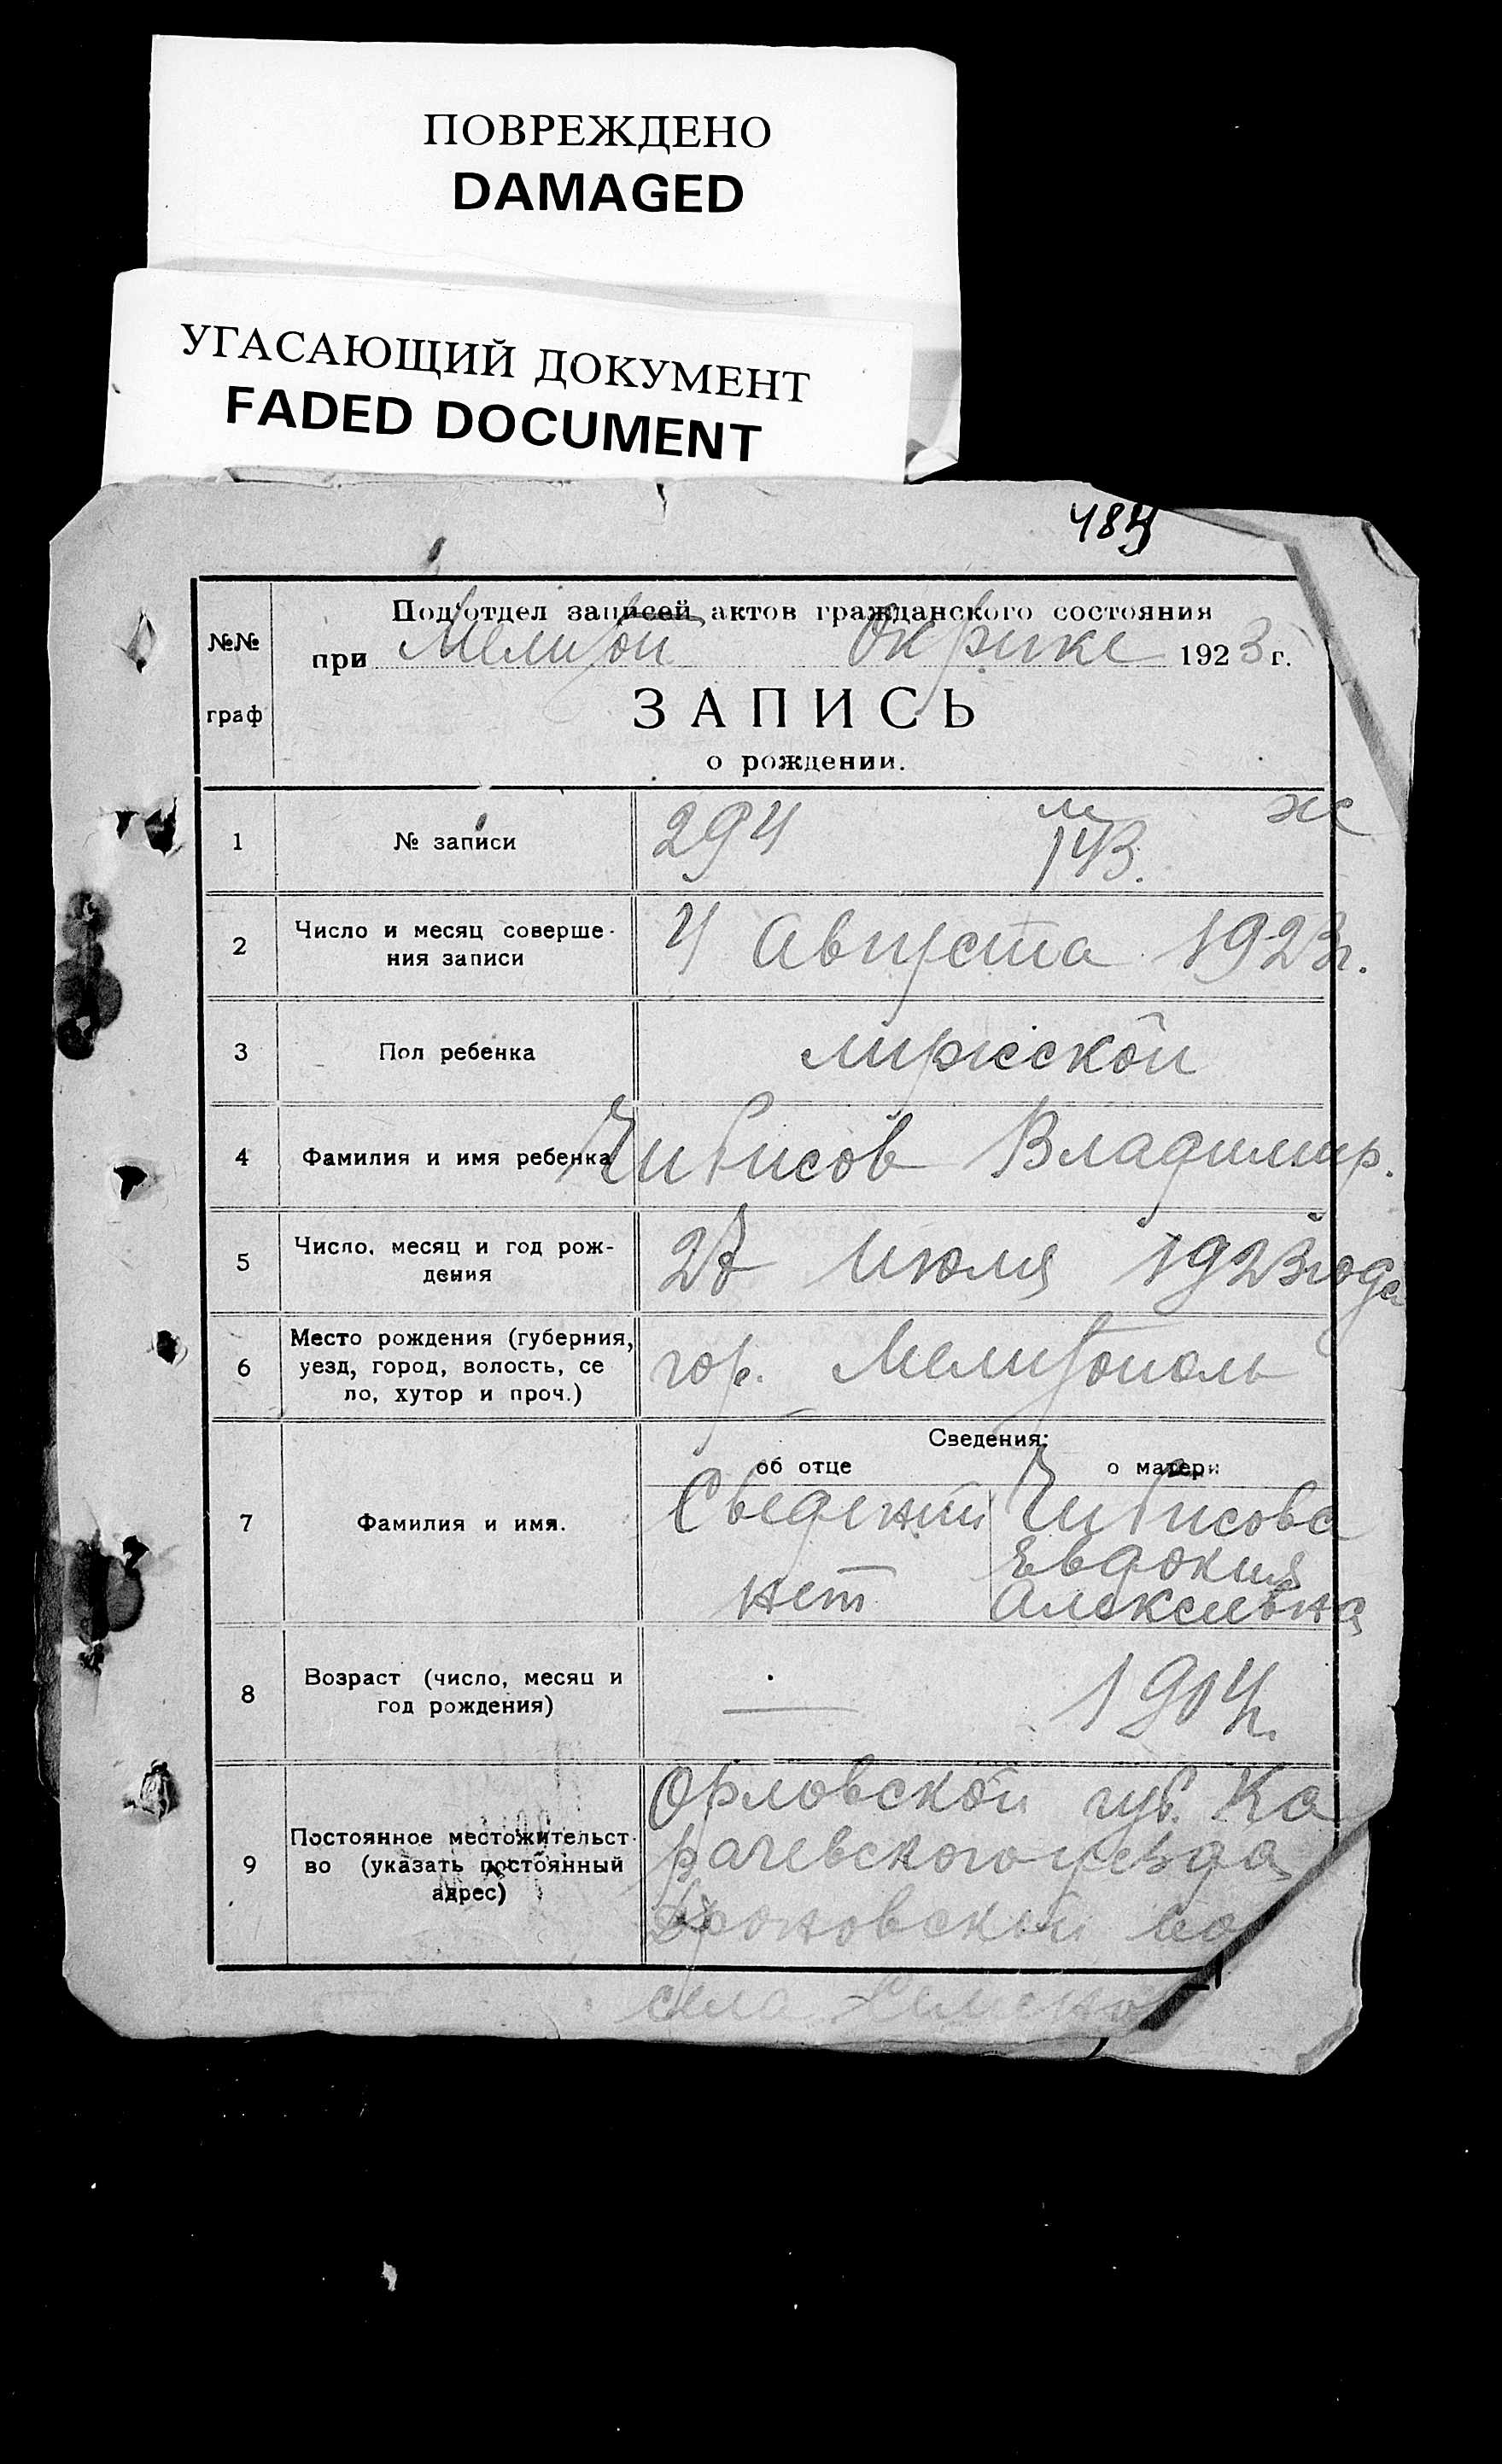 ПОВРЕЖДЕНО
DAMAGED
УГАСАЮЩИЙ ДОКУМЕНТ
FADED DOCUMENT
Подʼотдел записей актов гражданского состояния
№№ граф
при Мелитоп Окрике 1923 г.
ЗАПИСЬ
о рождении.
м ж
1 № записи 294 143.
2 Число и месяц соверше-
ния записи 4 Августа 1923 г.
3 Пол ребенка мужской
4 Фамилия и имя ребенка Чибисов Владимир.
5 Число, месяц и год рож-
дения 27 Июля 1923 года
6 Место рождения (губерния,
уезд, город, волость, се
ло, хутор и проч.) гор. Мелитополь
Сведения:
об отце о матери
7 Фамилия и имя. Сведений Чибисова
Евдокия
нет Алексеевна
8 Возраст (число, месяц и
год рождения) — 1904 г.
9 Постоянное местожительст-
во (указать постоянный
адрес) Орловской губ. Ка
рачевского уезда
села